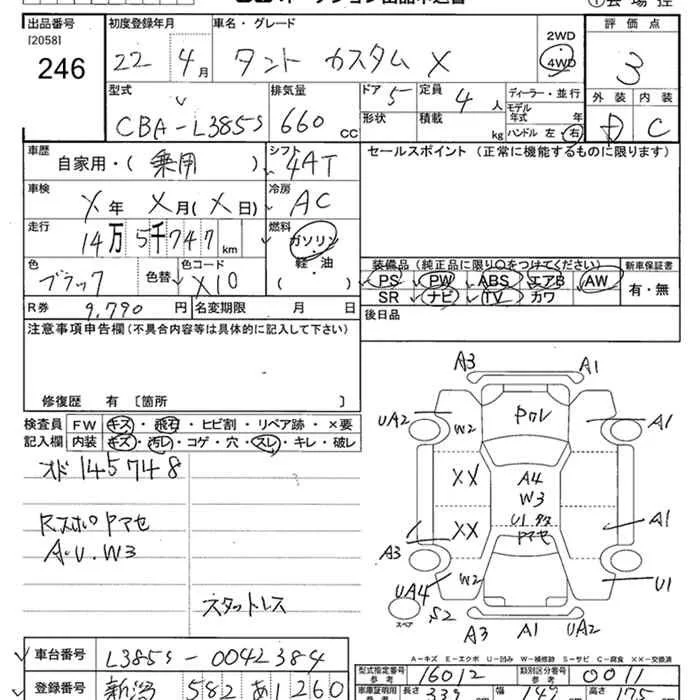 出品番号 初度登録年月 車名・グレード 評価点
[2058] 246 22年 4月 タント カスタム X 2WD 4WD 3
型式 排気量 ドア 5 定員 4人 ディーラー・並行 外装 内装
CBA-L385S 660cc 形状 積載 kg モデル年式 年 ハンドル 左・右 C
車歴 自家用・(乗用) シフト 4AT セールスポイント(正常に機能するものに限ります)
車検 X年 X月(X日) 冷房 AC
走行 14万5千747km 燃料 ガソリン・軽・油 ( )
装備品(純正品に限り〇をつけてください) 新車保証書
色 ブラック 色替 色コード X10 PS PW ABS エアB AW 有・無
R券 9,790円 名変期限 月 日 SR ナビ TV カワ
注意事項申告欄(不具合内容等は具体的に記入して下さい) 後日品
修復歴 有 〔箇所 〕
検査員 FW キズ・飛石・ヒビ割・リペア跡・×要
記入欄 内装 キズ・汚レ・コゲ・穴・スレ・キレ・破レ
オド145748
RスポロヤマセA・U・W3
スタットレス
A3 A1
UA2 W2 A1
XX A4 W3
XX U1 A1
A3
UA4 W2 U1
スペア S2 A3 A1 UA2
A-キズ E-エクボ U-凹み W-補修跡 S-サビ C-腐食 XX-交換
車台番号 L385S-0042384 型式指定番号 参考 16012 類別区分番号 参考 0011
登録番号 新潟 582 あ 1260 長さ 339 幅 147 高さ 175